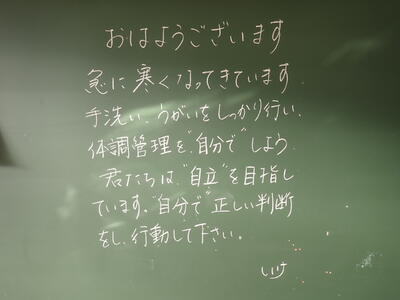 おはようございます
急に寒くなってきています.
手洗い、うがいをしっかり行い、
体調管理を"自分で"しよう.
君たちは、"自立"を目指し
ています。"自分で"正しい判断
をし、行動して下さい。